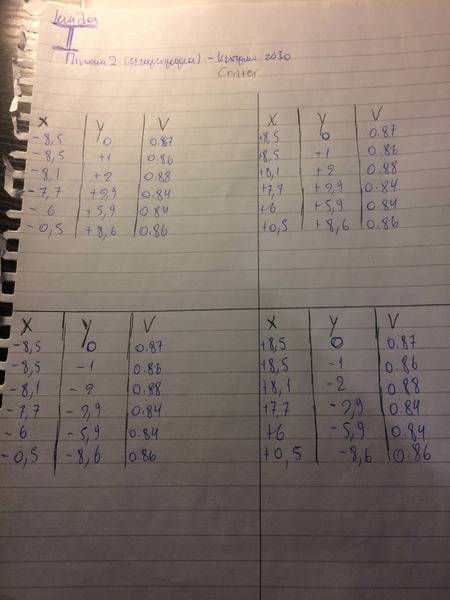 II
2
X Y V
-8,5 0 0.87
-8,5 +1 0.86
-8,1 +2 0.88
-7,7 +2,9 0.84
-6 +5,9 0.84
-0,5 +8,6 0.86
X Y V
+8,5 0 0.87
+8,5 +1 0.86
+8,1 +2 0.88
+7,7 +2,9 0.84
+6 +5,9 0.84
+0,5 +8,6 0.86
X Y V
-8,5 0 0.87
-8,5 -1 0.86
-8,1 -2 0.88
-7,7 -2,9 0.84
-6 -5,9 0.84
-0,5 -8,6 0.86
X Y V
+8,5 0 0.87
+8,5 -1 0.86
+8,1 -2 0.88
+7,7 -2,9 0.84
+6 -5,9 0.84
+0,5 -8,6 0.86